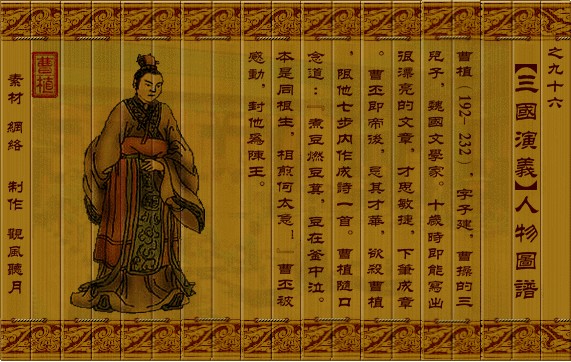 之九十六
【三國演義】人物圖譜
曹植（192-232），字子建，曹操的三
兒子，魏國文學家。十歲時即能寫出
很漂亮的文章，才思敏捷，下筆成章
。曹丕即帝後，忌其才華，欲殺曹植
，限他七步內作成詩一首。曹植隨口
念道：『煮豆燃豆萁，豆在釜中泣。
本是同根生，相煎何太急！』曹丕被
感動，封他爲陳王。
曹植
素材 網絡 制作 觀風聽月